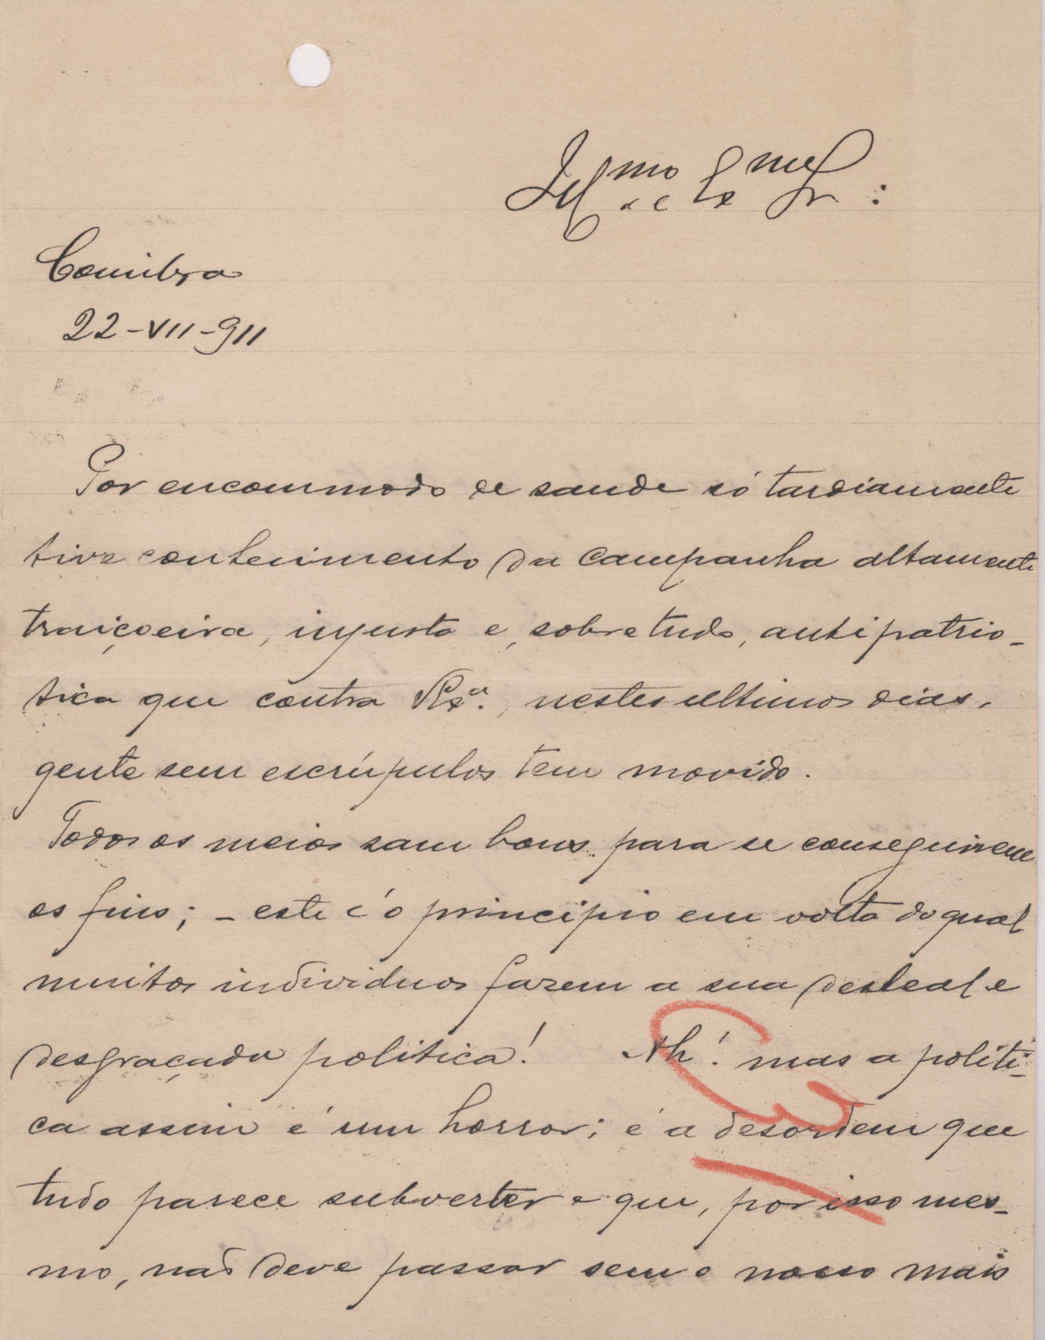 Ill.mo e Ex.mo Sr. :
Coimbra
22-VII-911
Por encommodo de saude só tardiamente
tive conhecimento da campanha altamente
traiçoeira, injusta e, sobretudo, antipatrio-
tica que contra V. Ex.a, nestes ultimos dias,
gente sem escrúpulos tem movido.
Todos os meios sam bons para se conseguirem
os fins; - este é o principio em volta do qual
muitos individuos fazem a sua desleal e
desgraçada politica! Ah! mas a politi-
ca assim é um horror; é a desordem que
tudo parece subverter e que, por isso mes-
mo, não deve passar sem o nosso mais